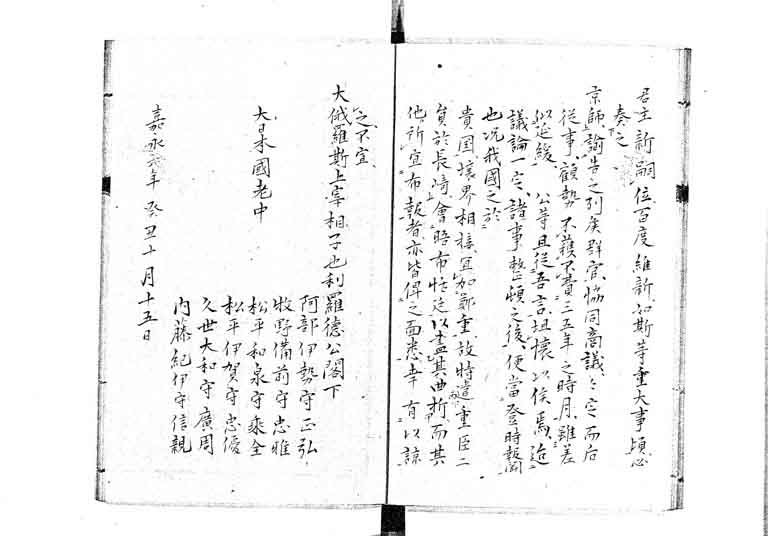 君主新嗣位百度維新如斯等重大事須必
奏之
京師諭告之列矦群官協同商議々定而后
従事顧勢不獲不費三五年之時月雖差
似延緩公等且従吾言坦懐以俟焉迨
議論一定諸事整頓之後便當登時報聞
也况我國之於
貴国壌界相接宜加鄭重故特遣重臣二
員於長﨑會晤布恬廷以盡其曲折而其
他所宣布報者亦皆俾之面悉幸有以諒
之不宣
大俄羅斯上宰相子也利羅德公閣下
大日本國老中
阿部伊勢守正弘
牧野備前守忠雅
松平和泉守乘全
松平伊賀守忠優
久世大和守廣周
内藤紀伊守信親
嘉永六年癸丑十月十五日